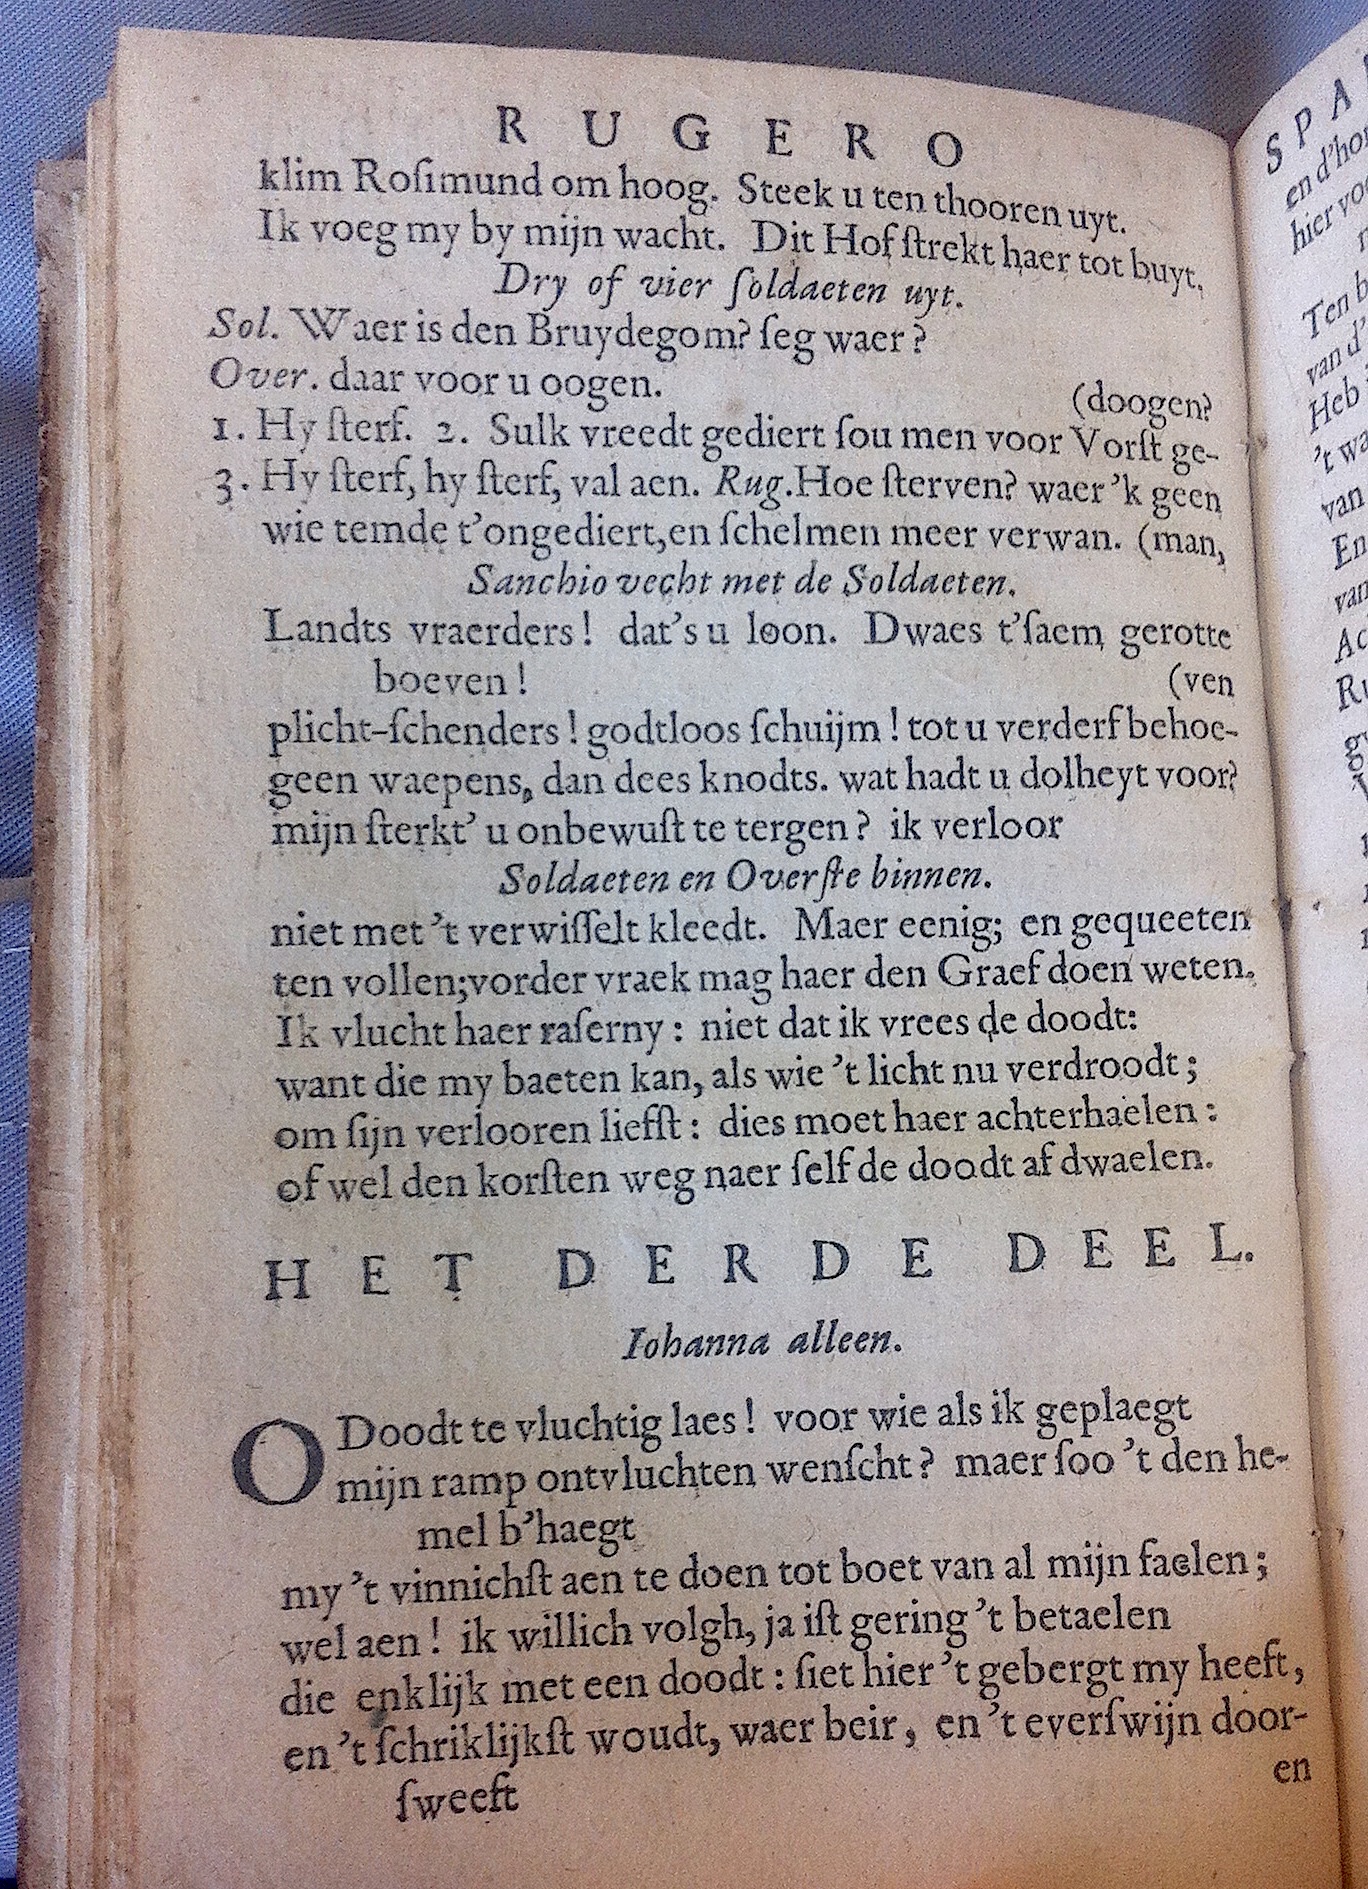 RUGERO
klim Roſimund om hoog. Steek u ten thooren uyt.
Ik voeg my by mijn wacht. Dit Hof ſtrekt haer tot buyt.
Dry of vier ſoldaeten uyt.
Sol. Waer is den Bruydegom? ſeg waer?
Over. daar voor u oogen.
(doogen?
1. Hy ſterf. 2. Sulk vreedt gediert ſou men voor Vorſt ge-
3. Hy ſterf, hy ſterf, val aen. Rug. Hoe ſterven? waer 'k geen
wie temde t'ongediert, en ſchelmen meer verwan. (man,
Sanchio vecht met de Soldaeten.
Landts vraerders! dat's u loon. Dwaes t'ſaem gerotte
boeven! (ven
plicht-ſchenders! godtloos ſchuijm! tot u verderf behoe-
geen waepens, dan dees knodts. wat hadt u dolheyt voor?
mijn ſterkt' u onbewuſt te tergen? ik verloor
Soldaeten en Overſte binnen.
niet met 't verwiſſelt kleedt. Maer eenig; en gequeeten
ten vollen; vorder vraek mag haer den Graef doen weten.
Ik vlucht haer raſerny: niet dat ik vrees de doodt:
want die my baeten kan, als wie 't licht nu verdroodt;
om ſijn verlooren liefſt: dies moet haer achterhaelen:
of wel den korſten weg naer ſelf de doodt af dwaelen.
HET DERDE DEEL.
Iohanna alleen.
O Doodt te vluchtig laes! voor wie als ik geplaegt
mijn ramp ontvluchten wenſcht? maer ſoo 't den he-
mel b'haegt
my 't vinnichſt aen te doen tot boet van al mijn faelen;
wel aen! ik willich volgh, ja iſt gering 't betaelen
die enklijk met een doodt: ſiet hier 't gebergt my heeft,
en 't ſchriklijkſt woudt, waer beir, en 't everſwijn door-
ſweeft
en
SPA
en d'ho
hier vo
Ten b
van d'
Heb
't wa
van
En
van
Ac
Ru